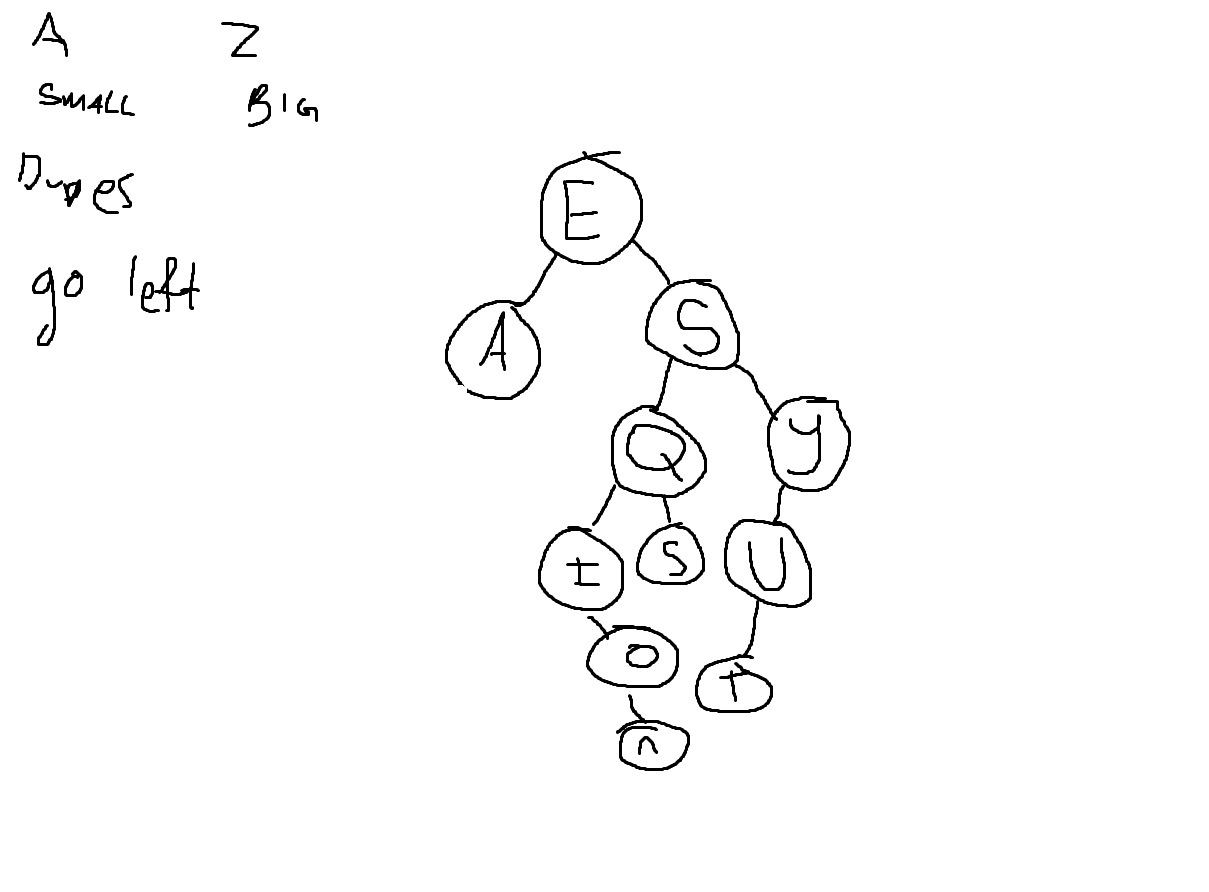 A Z
SMALL BIG
Dupes
go left
E
A S
Q Y
I S U
O T
n